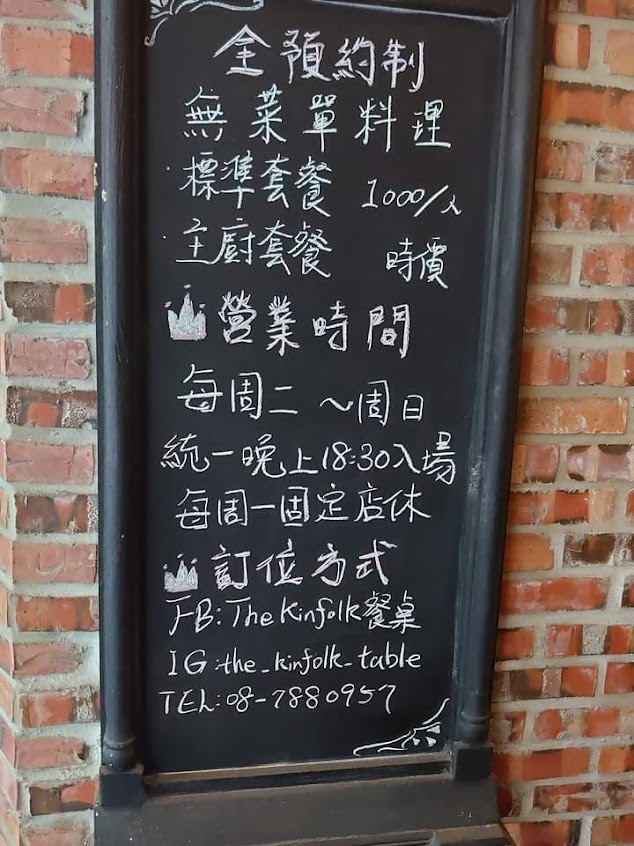 全預約制
無菜單料理
標準套餐 1000/人
主廚套餐 時價
營業時間
每周二 ~周日
統一晚上18:30入場
每周一固定店休
訂位方式
FB:The Kinfolk餐桌
IG:the_kinfolk_table
TEL:08-7880957